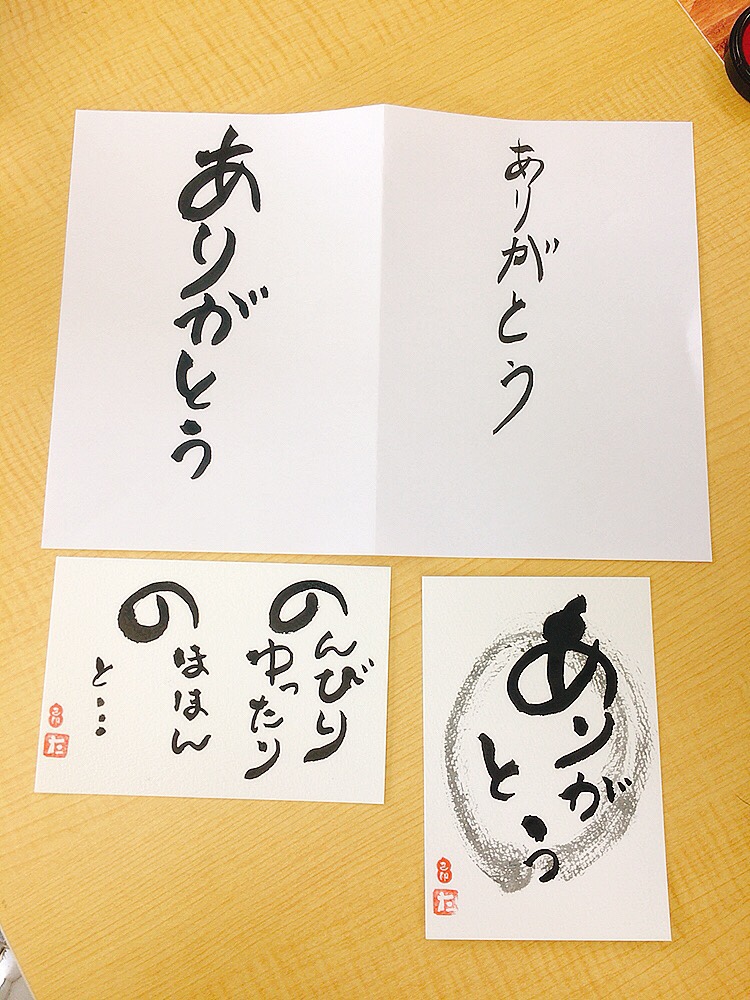 ありがとう
ありがとう
のんびり
ゆったり
のほほん
と...
ありが
とう